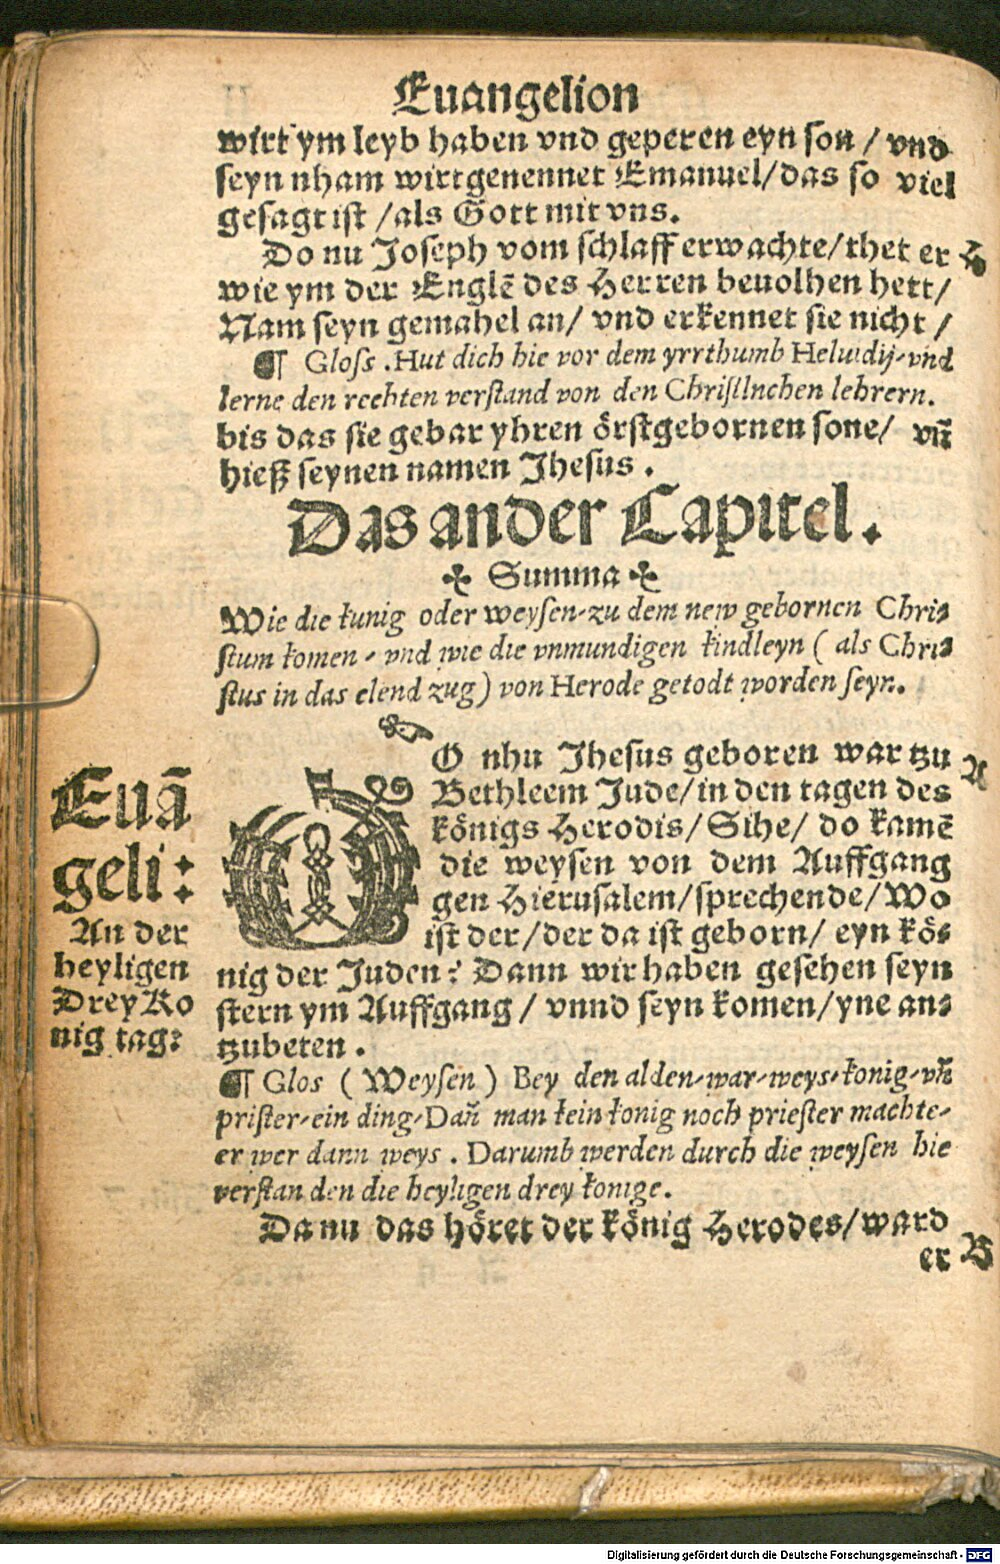 Euangelion
wirt ym leyb haben vnd geperen eyn son / vnd
seyn nham wirt genennet Emanuel/das so viel
gesagt ist /als Gott mit vns.
Do nu Joseph vom schlaff erwachte/thet er
wie ym der Englē des Herren beuolhen hett/
Nam seyn gemahel an/ vnd erkennet sie nicht /
¶ Gloſs . Hut dich hie vor dem yrrthumb Heluidij, vnd
lerne den rechten verſtand von den Chriſtlnchen lehrern.
bis das sie gebar yhren örstgebornen sone/ vn̄
hieß seynen namen Jhesus .
Das ander Capitel.
✣ Summa ✣
Wie die kunig oder weyſen, zu dem new gebornen Chri⸗
ſtum komen, vnd wie die vnmundigen kindleyn ( als Chri⸗
ſtus in das elend zug) von Herode getodt worden ſeyn.
DO nhu Jhesus geboren war tzu
Bethleem Jude/in den tagen des
königs Herodis/Sihe/ do kamē
die weysen von dem Auffgang
gen Hierusalem/sprechende/Wo
ist der/der da ist geborn/ eyn kö⸗
nig der Juden? Dann wir haben gesehen seyn
stern ym Auffgang / vnnd seyn komen/yne an⸗
tzubeten .
¶ Glos ( Weyſen ) Bey den alden, war, weys, konig, vn̄
priſter, ein ding, Dan̄ man kein konig noch prieſter machte,
er wer dann weys . Darumb werden durch die weyſen hie
verſtan den die heyligen drey konige.
Da nu das höret der könig Herodes/ward
er
A
B
Euā
geli:
An der
heyligen
Drey Ko
nig tag:
Digitalisierung gefördert durch die Deutsche Forschungsgemeinschaft - DFG